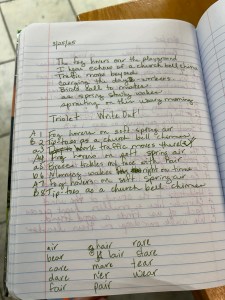 3/25/25
The fog hovers over the playground
I hear echoes of a church bell chime
Traffic moves beyond
carrying the day's workers.
Birds call to mates
as spring slowly wakes
sprouting on this morning
Triolet Write Out!
A 1 Fog hovers on soft spring air
B 2 Tip-toes as a church bell chimes
a 3 traffic moves there
A 4 Fog hovers on soft spring air
a 5 my face with hair
b 6 Morning wakes right on time
A 7 Fog hovers on soft spring air
B 8 Tip-toes as a church bell chimes
air hair rare
bear lair stare
care mare tear
dare n'er wear
fair pair